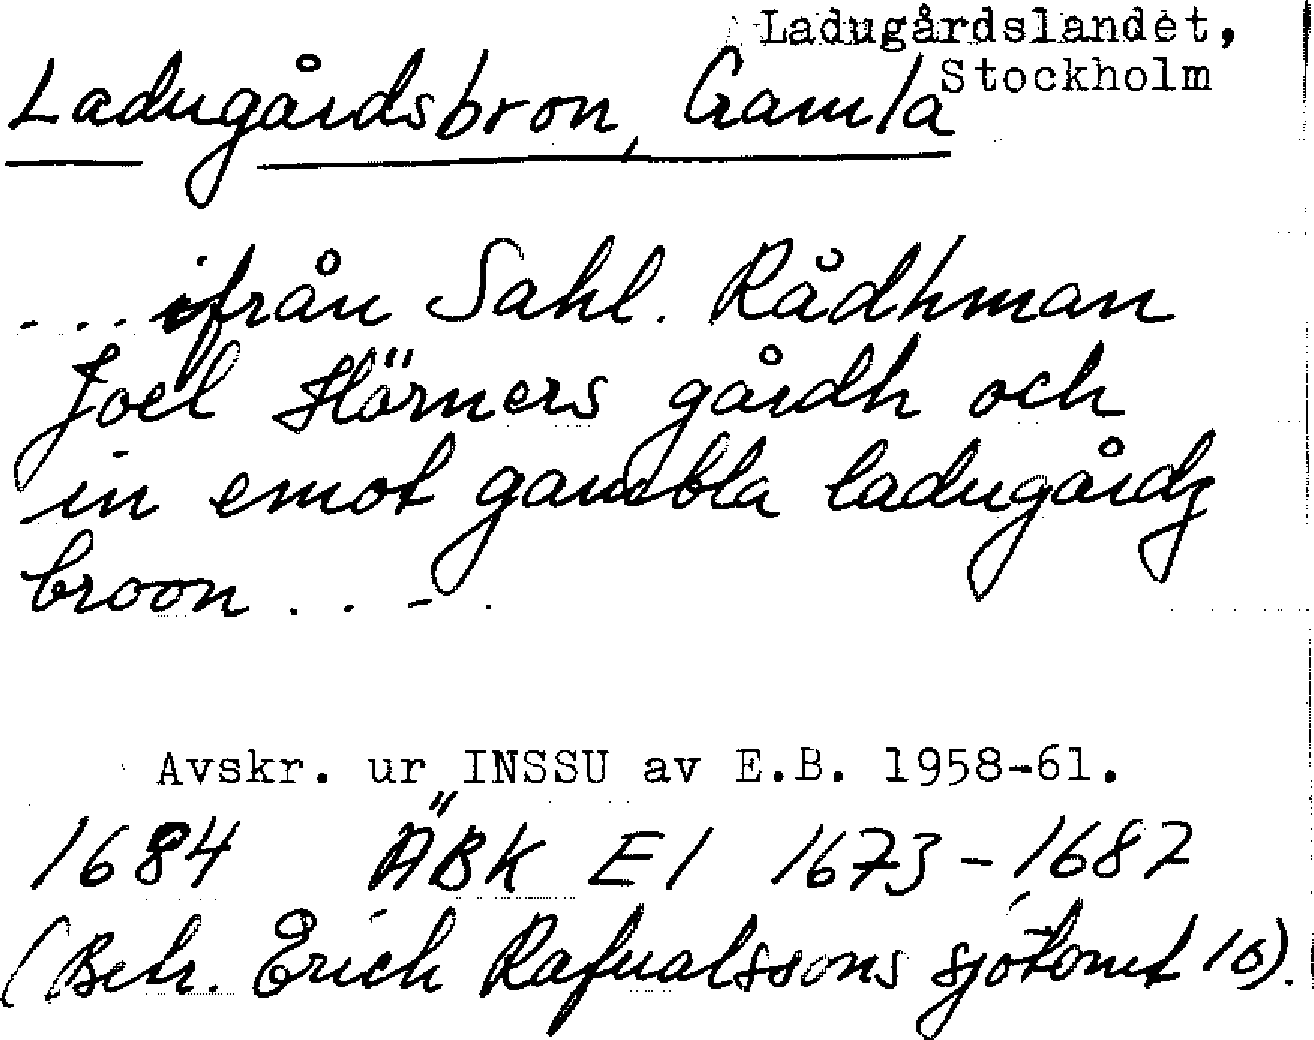 Ladugårdslandet,
Stockholm
Ladugårdsbron, Gamla
... ifrån Sahl. Rådhman
Joel Hörners gårdh och
in emot gambla ladugårdz
broon . . - .
Avskr. ur INSSU av E.B. 1958-61.
1684 ÄBK E1 1673-1687
(Betr. Erich Rafualssons sjötomt 10).